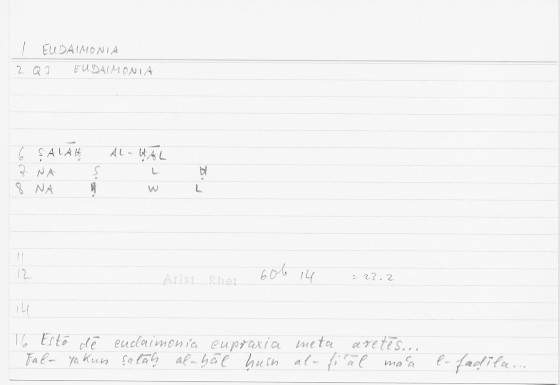 1 EUDAIMONIA
2 QJ EUDAIMONIA
6 ṢALĀḤ AL-ḤĀL
7 NA Ṣ L Ḥ
8 NA Ḥ W L
11
12 Arist Rhet 60b 14 = 22.2
14
16 Estō dē eudaimonia eupraxia meta aretēs...
Fal-yakun ṣalāḥ al-ḥāl ḥusn al-fiʿāl maʿa l-faḍīla...